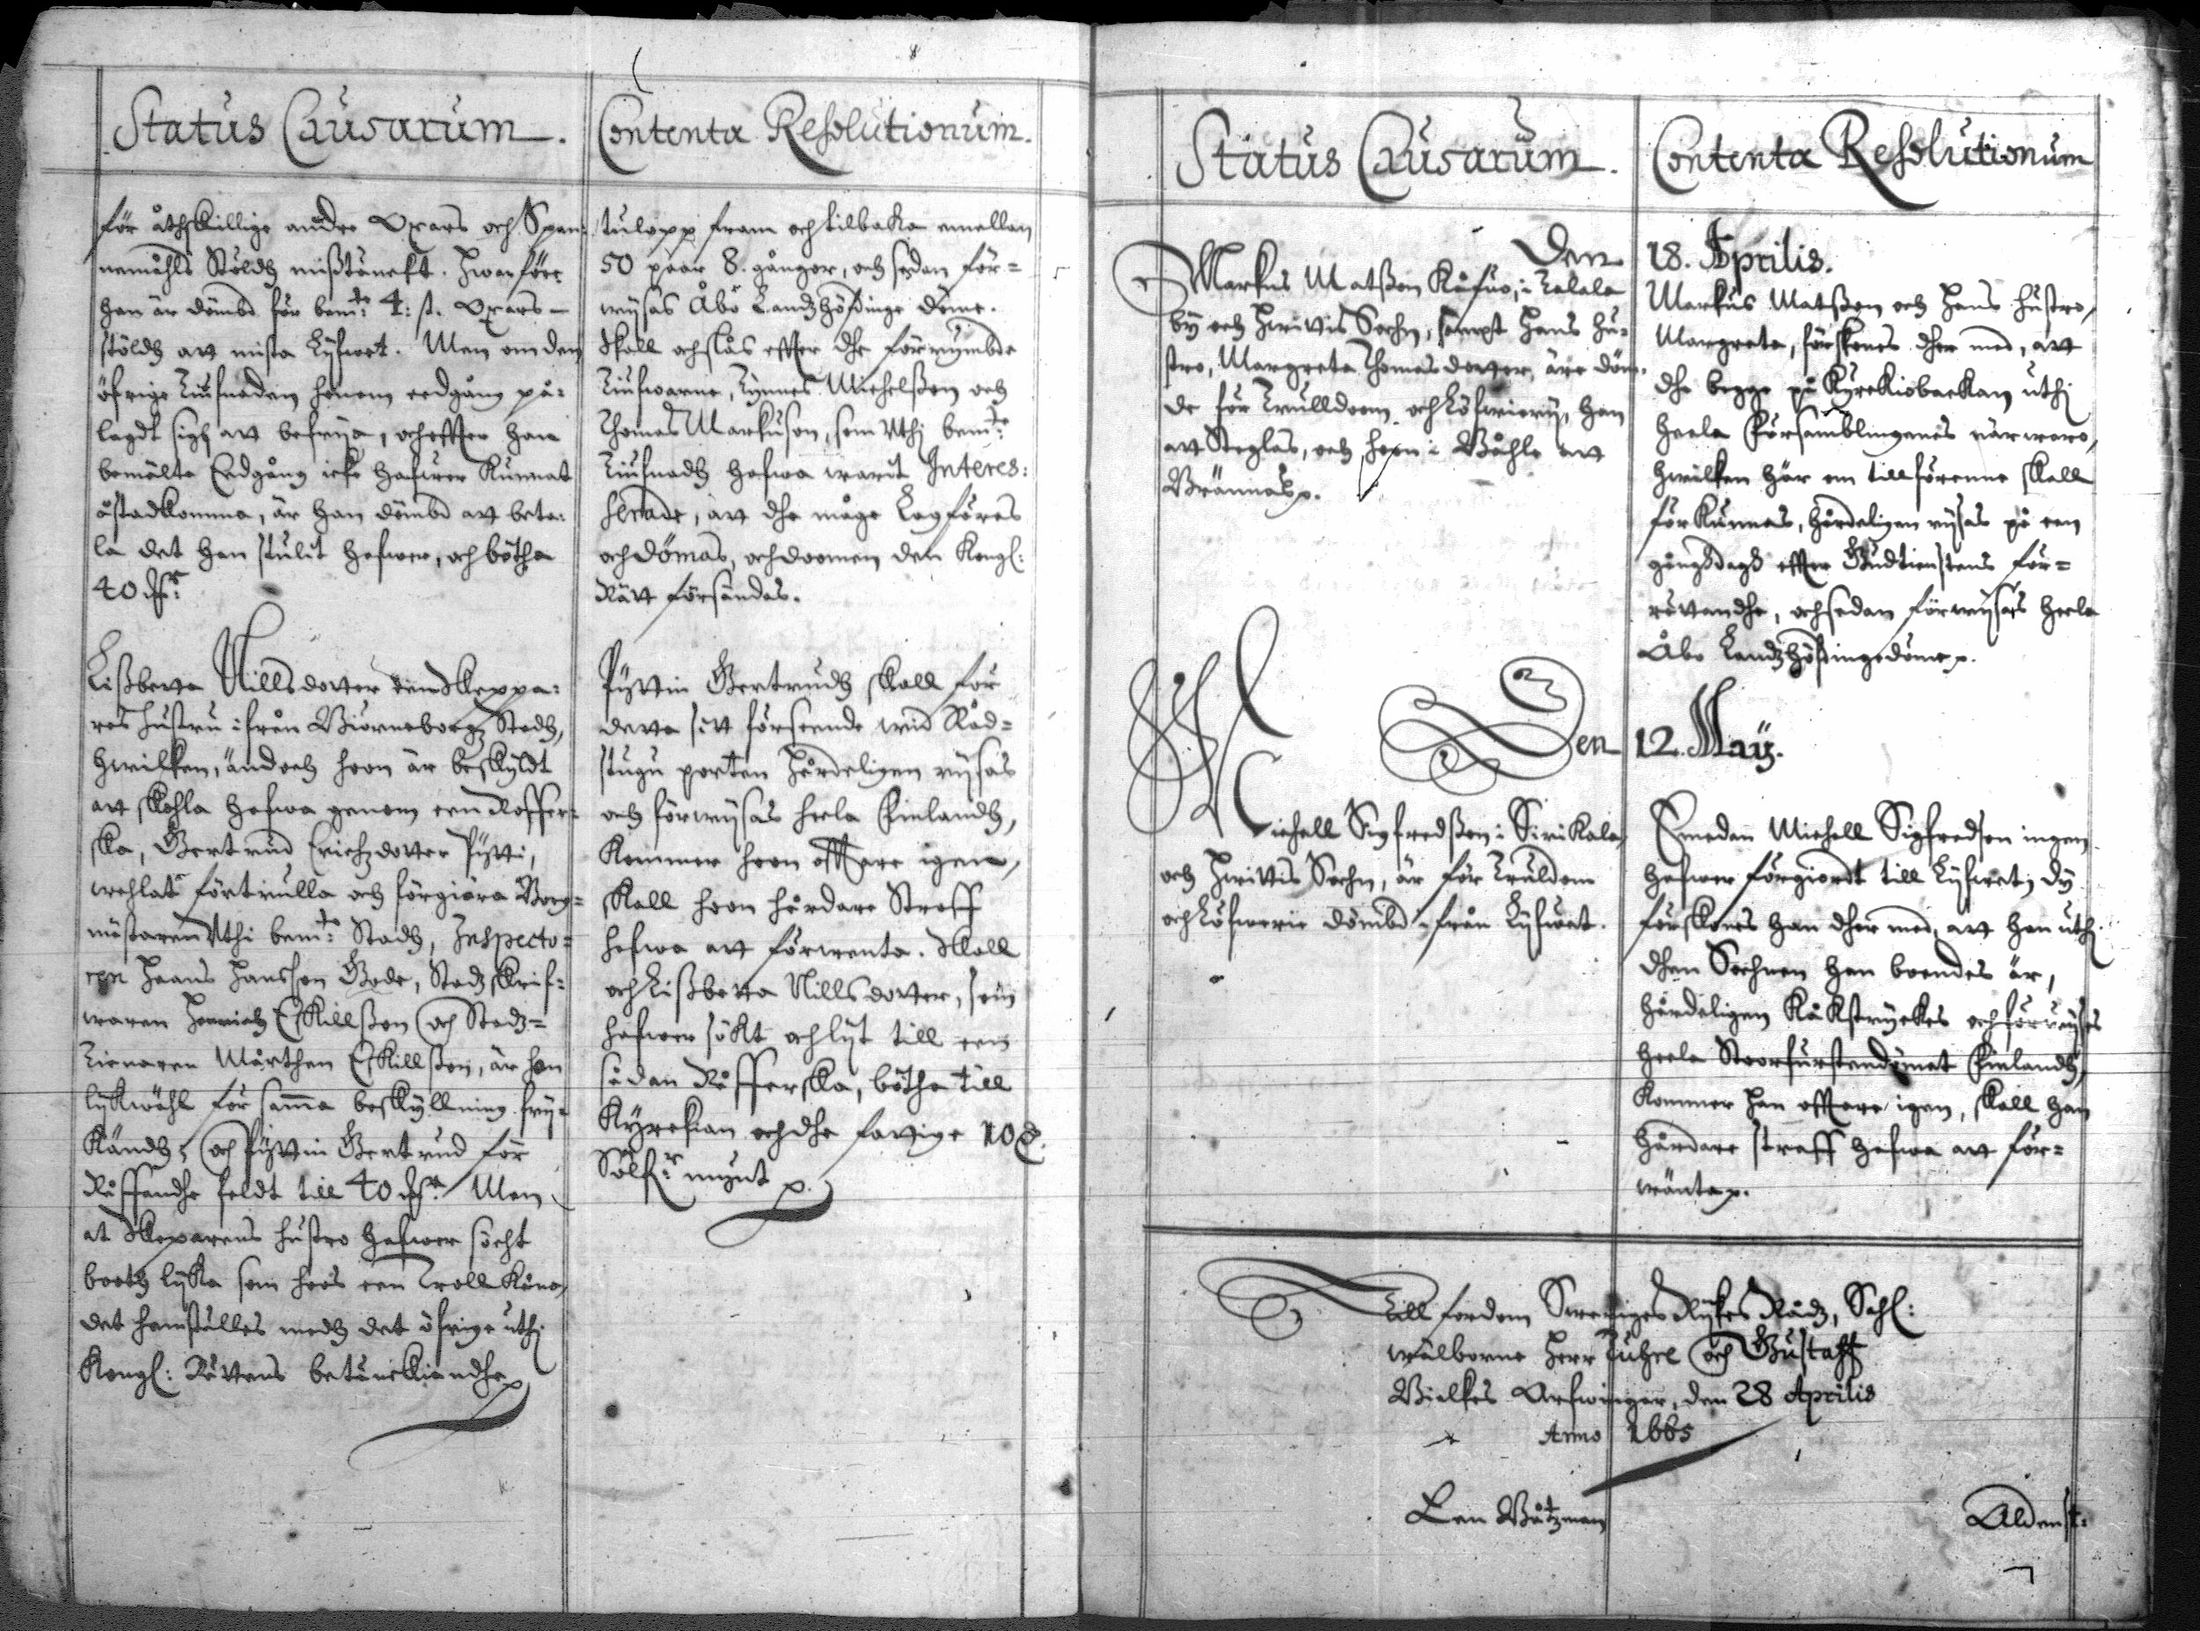 Status Causarum.
för åthskillige andre Oxars och Span-
nemåhls Stöldh mißtänckt. Hwarföre
han är dömbd för bem:te 4: st. Oxars-
stöldh att mista Lijfwet. Men om den
öfrige Tiufnaden honom eedgång på-
lagdt sigh att befrija, och effter han
bemälte Eedgång icke hafwer kunnat
åstadkomma, är han dömbd att beta-
la det han stulit hafwer, och bötha
40 dlr.
Lißbetta Nillsdotter een Skeppa-
res hustru ifrån Biörneborgz Stadh,
hwilken, ändoch hoon är beskyldt
att skohla hafwa genom een Kofferska
ska, Gertrud Erichzdotter Pijtti,
wehlat förtrulla och förgiöra Borg-
mästaren Uthi bem:te Stadh, Inspecto-
ren Haans Hansson Gode, Stadzskrif-
waren Henrich Eskillßon och Stadz-
Tienaren Mårthen Eskillßon, är hon
lijkwähl för samma beskyllning frij-
kändh, och Pijttin Gertrud för
Kåffandhe feldt till 40 dlr. Men
at Skeparens hustro hafwer söcht
booth lijka som hoos een Troll Kona,
det hemställes medh det öfrige uthj
Kongl: Rättens betänckiandhe
Contenta Resolutionum.
tulopp fram och tilbaka emellan
50 paar 8. gånger, och sedan för-
wijsas Åbo Landzhöfdinge döme.
Skall och slås effter dhe förrymbde
Tiufwarne, Tynnes Michelßon och
Thomas Markuson, som Uthj bem:te
Tiufnadh hafwa warit Interes:
serade, att dhe måge Lagföras
och dömas, och doomen den Kongl:
Rätt försändas.
Pijttin Gertrudh skall för
detta sitt förseende wid Råd-
stugu porten Hårdeligen rijsas
och förwijsas heela Finlandh,
Kommer hoon offtare igen,
skall hoon hårdare Straff
hafwa att förwenta. Skall
och Lißbetta Nillsdotter, som
hafwer sökt och lijt till een
sådan Kåfferska, bötha till
Kyrckian och dhe fattige 10 d.
Sölf:r mynt
Status Causarum.
Den
Markus Matßon Kåfuo, i Lalala
by och Hwittis Sochn, sampt Hans Hu-
stro, Margreta Thomas dotter, äre döm-
de för Trulldoom och Löfwierij, Han
at Steglas, och hoon i Båhle at
Brännas.
Den
Michell Sigfredßon i Sirikala,
och Hwittis Sochn, är för Truldom
och Löfwerie dömbd ifrån Lijfwet.
Contenta Resolutionum
18. Aprilis.
Markus Matßon och Hans hustro,
Margreta, förskones dher med, att
dhe begge på Kyrckiobackan uthj
heela församblingenes närwaro,
hwilken här om tillförenne skall
förkunnas, hårdeligen rijsas på een
gångßdagß effter Gudtienstens för-
rättandhe, och sedan förwijses heela
Åbo Landzhöfdingedöme.
12. Maij.
Emedan Michell Sigfredson ingen
hafwer förgiordt till Lijfwet, dy
förskones han dher med, att han uthj
dhen Sochnen han boendes är,
hårdeligen Kåkstrijckes och förwijses
heela Stoorfurstendömet Finlandh,
Kommer Han offtare igen, skall han
hårdare straff hafwa att för-
wänta.
Till fordom Sweriges Rijkes Rådz, Sahl:
wälborne Herr Tuhre och Gustaff
Bielkes Arfwingar, den 28 Aprilis
Anno 1665
Låtzman